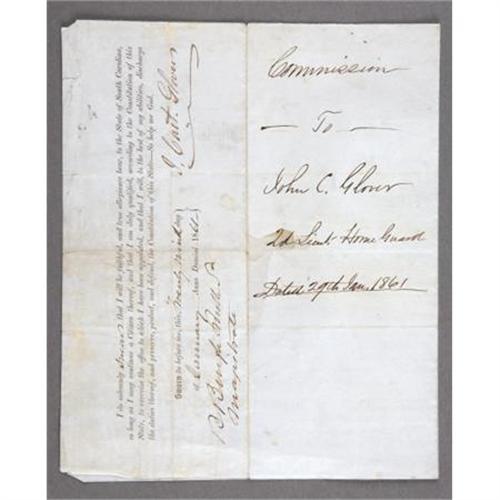 Commission
— To —
John C. Glover
2d Lieut Home Guard
Dated 29th Jan. 1861
I do solemnly swear that I will be faithful, and true allegiance bear, to the State of South Carolina,
so long as I may continue a Citizen thereof, and that I am duly qualified, according to the Constitution of this
State, to exercise the office to which I have been appointed, and that I will, to the best of my abilities, discharge
the duties thereof, and preserve, protect, and defend, the Constitution of this State—So help me God.
J. Glover
Sworn to before me, this twenty ninth day
of January Anno Domini 1861
Magistrate